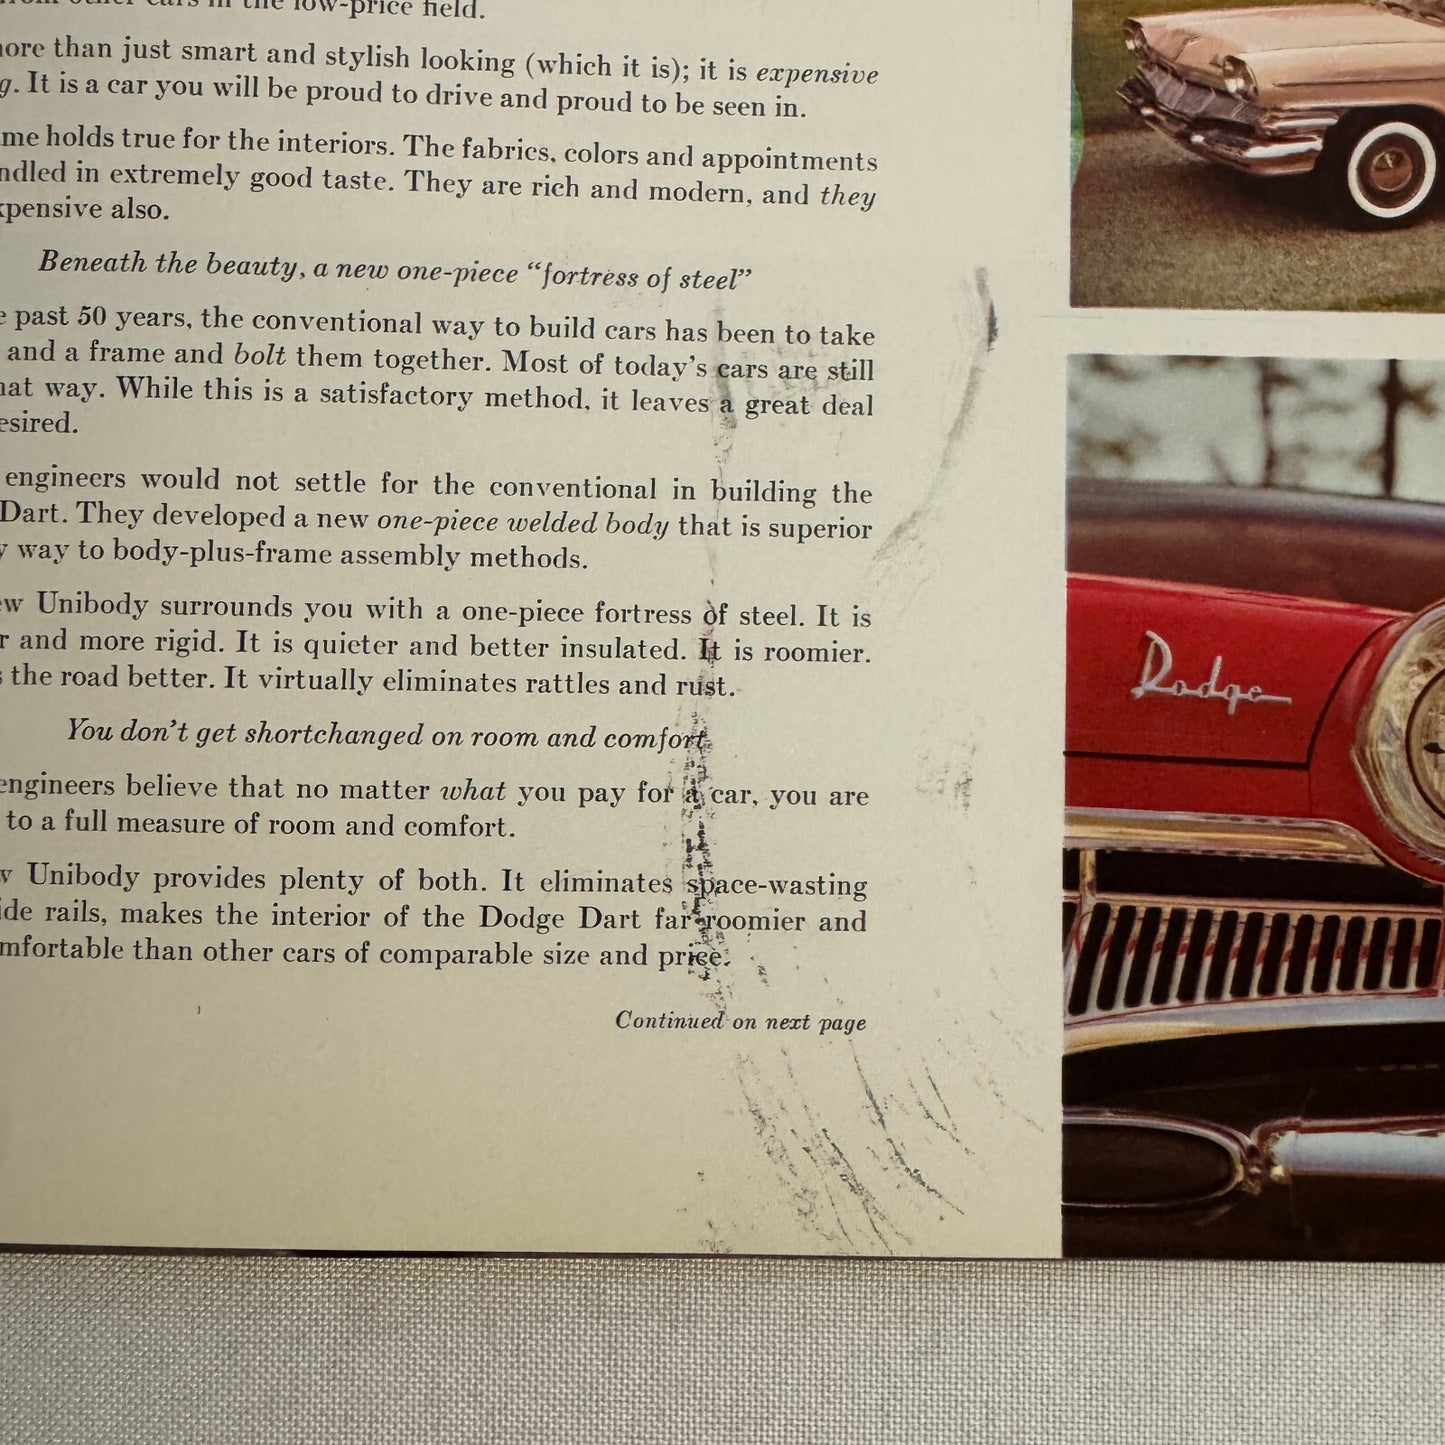 other cars in the low-price field.
more than just smart and stylish looking (which it is); it is expensive
It is a car you will be proud to drive and proud to be seen in.
me holds true for the interiors. The fabrics, colors and appointments
ndled in extremely good taste. They are rich and modern, and they
xpensive also.
Beneath the beauty, a new one-piece “fortress of steel”
e past 50 years, the conventional way to build cars has been to take
and a frame and bolt them together. Most of today’s cars are still
hat way. While this is a satisfactory method, it leaves a great deal
esired.
engineers would not settle for the conventional in building the
Dart. They developed a new one-piece welded body that is superior
y way to body-plus-frame assembly methods.
ew Unibody surrounds you with a one-piece fortress of steel. It is
r and more rigid. It is quieter and better insulated. It is roomier.
s the road better. It virtually eliminates rattles and rust.
You don’t get shortchanged on room and comfort.
engineers believe that no matter what you pay for a car, you are
to a full measure of room and comfort.
w Unibody provides plenty of both. It eliminates space-wasting
ide rails, makes the interior of the Dodge Dart far roomier and
mfortable than other cars of comparable size and price.
Continued on next page
Dodge